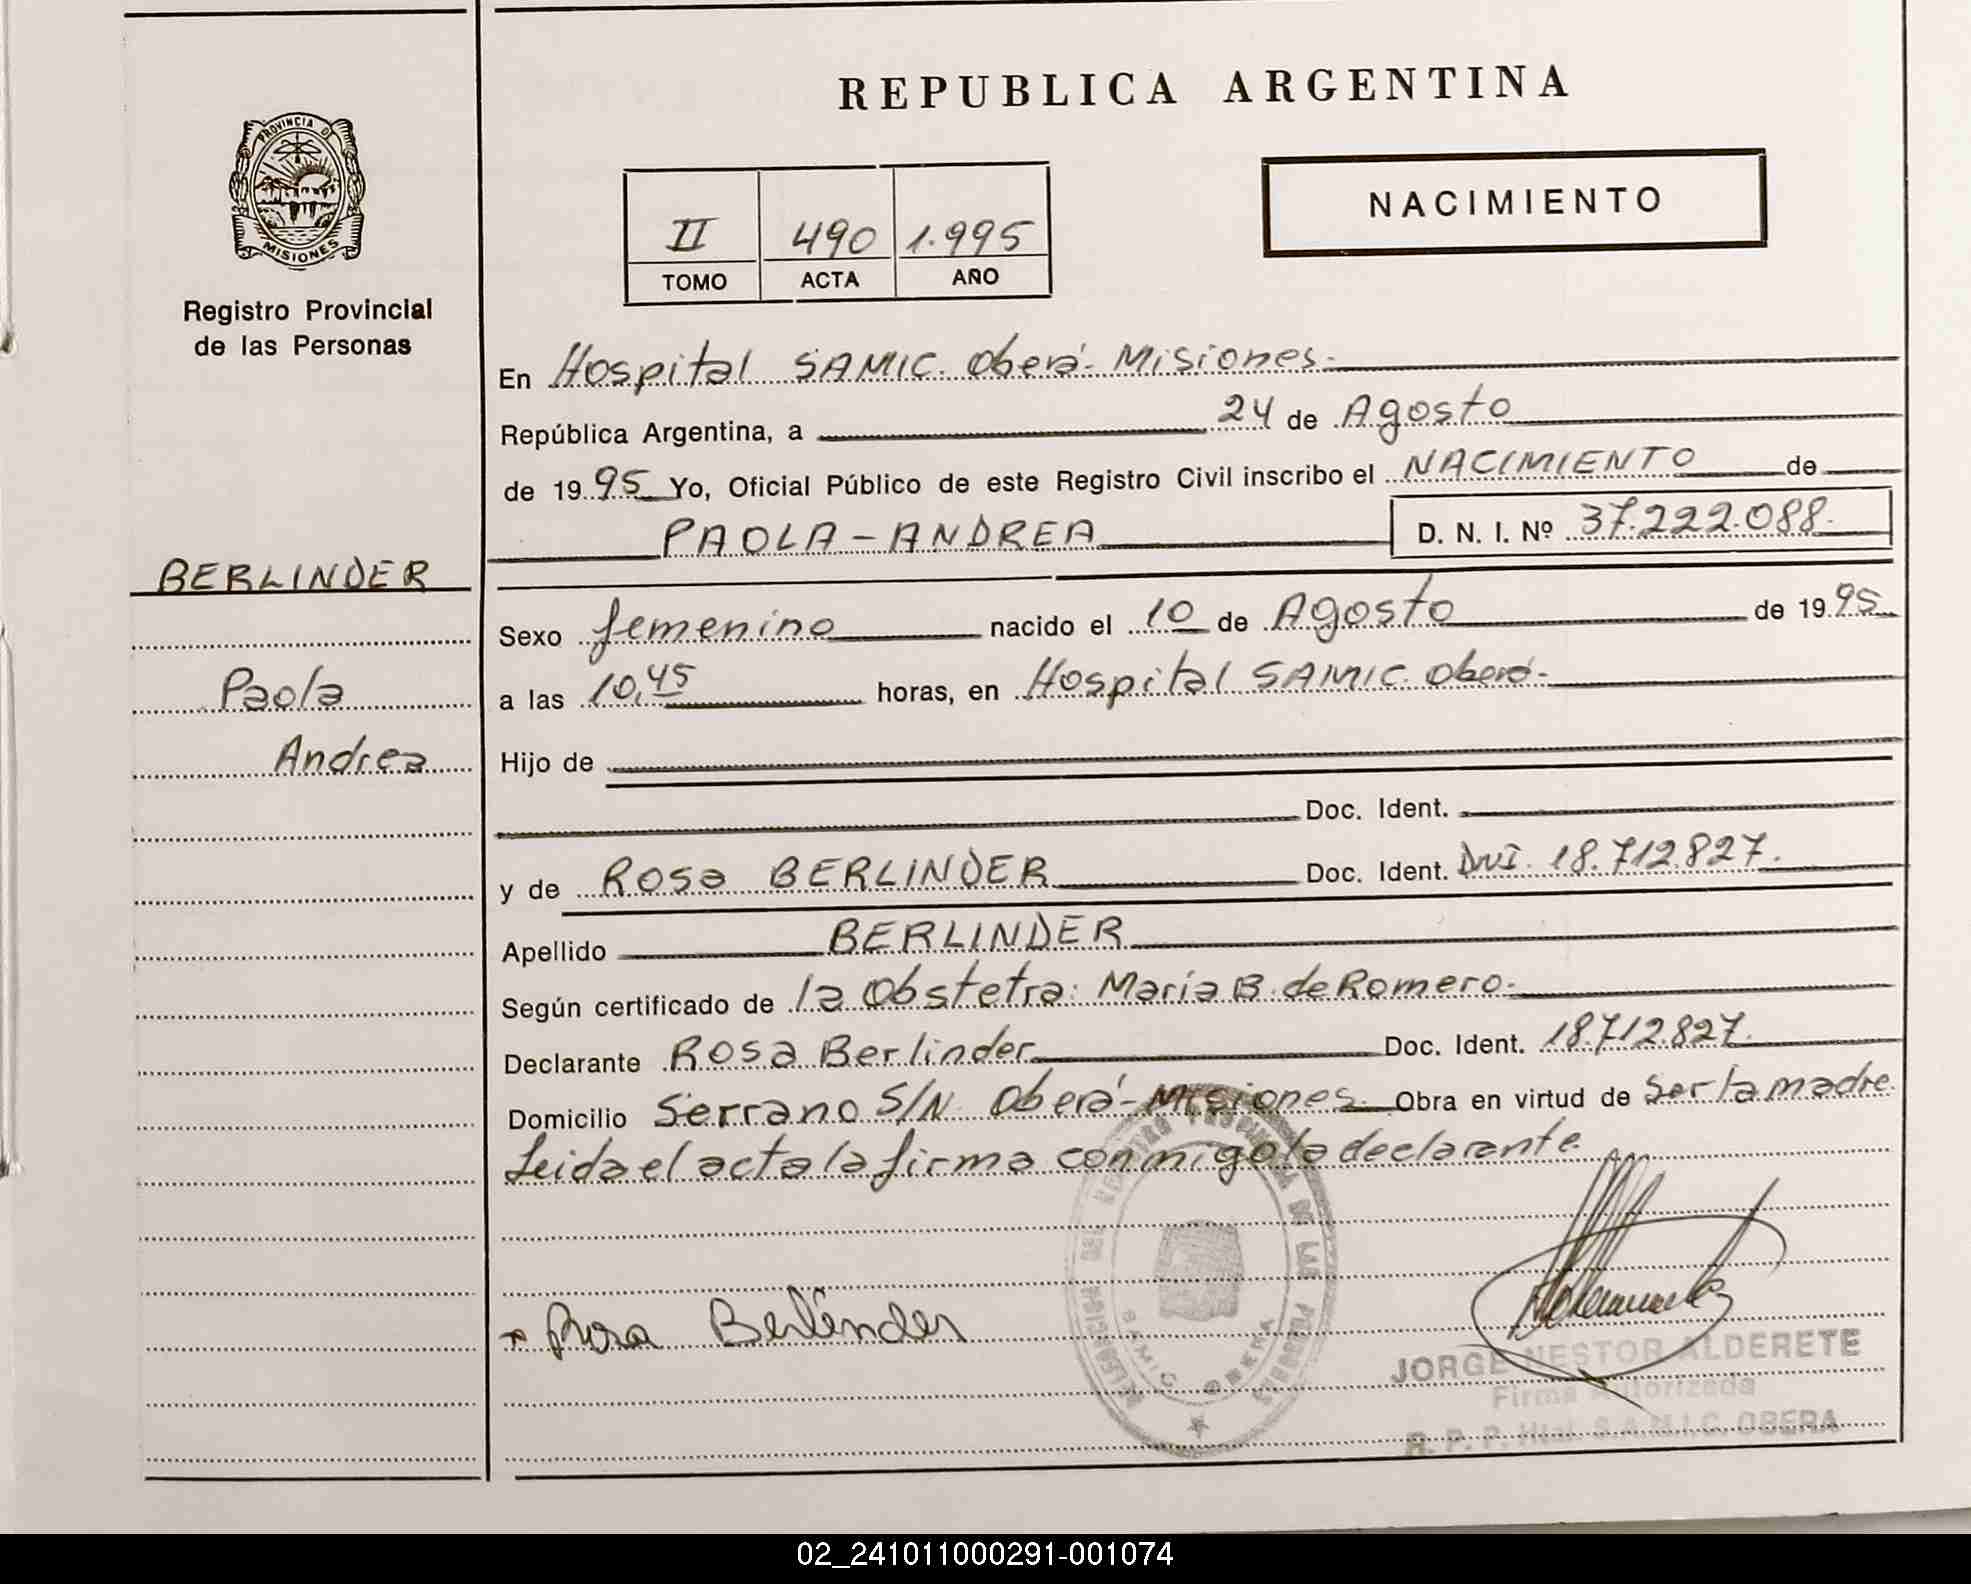 REPUBLICA ARGENTINA
PROVINCIA DE
MISIONES
Registro Provincial
de las Personas
NACIMIENTO
II 490 1.995
TOMO ACTA AÑO
En Hospital SAMIC. Oberá- Misiones-
República Argentina, a 24 de Agosto
de 1995 Yo, Oficial Público de este Registro Civil inscribo el NACIMIENTO de
PAOLA-ANDREA D. N. I. Nº 37.222.088.
BERLINDER
Paola
Andrea
Sexo femenino nacido el 10 de Agosto de 1995
a las 10,45 horas, en Hospital SAMIC. Oberá-
Hijo de
Doc. Ident.
y de Rosa BERLINDER Doc. Ident. DNI. 18.712.827.
Apellido BERLINDER
Según certificado de la Obstetra: María B. de Romero.
Declarante Rosa Berlinder Doc. Ident. 18.712.827.
Domicilio Serrano S/N. Oberá-Misiones. Obra en virtud de ser la madre.
Leida el acta la firma conmigo la declarante.
Rosa Berlinder
SAMIC OBERA
JORGE NESTOR ALDERETE
Firma Autorizada
R. P. P. Htal S.A.M.I.C. OBERA
02_241011000291-001074